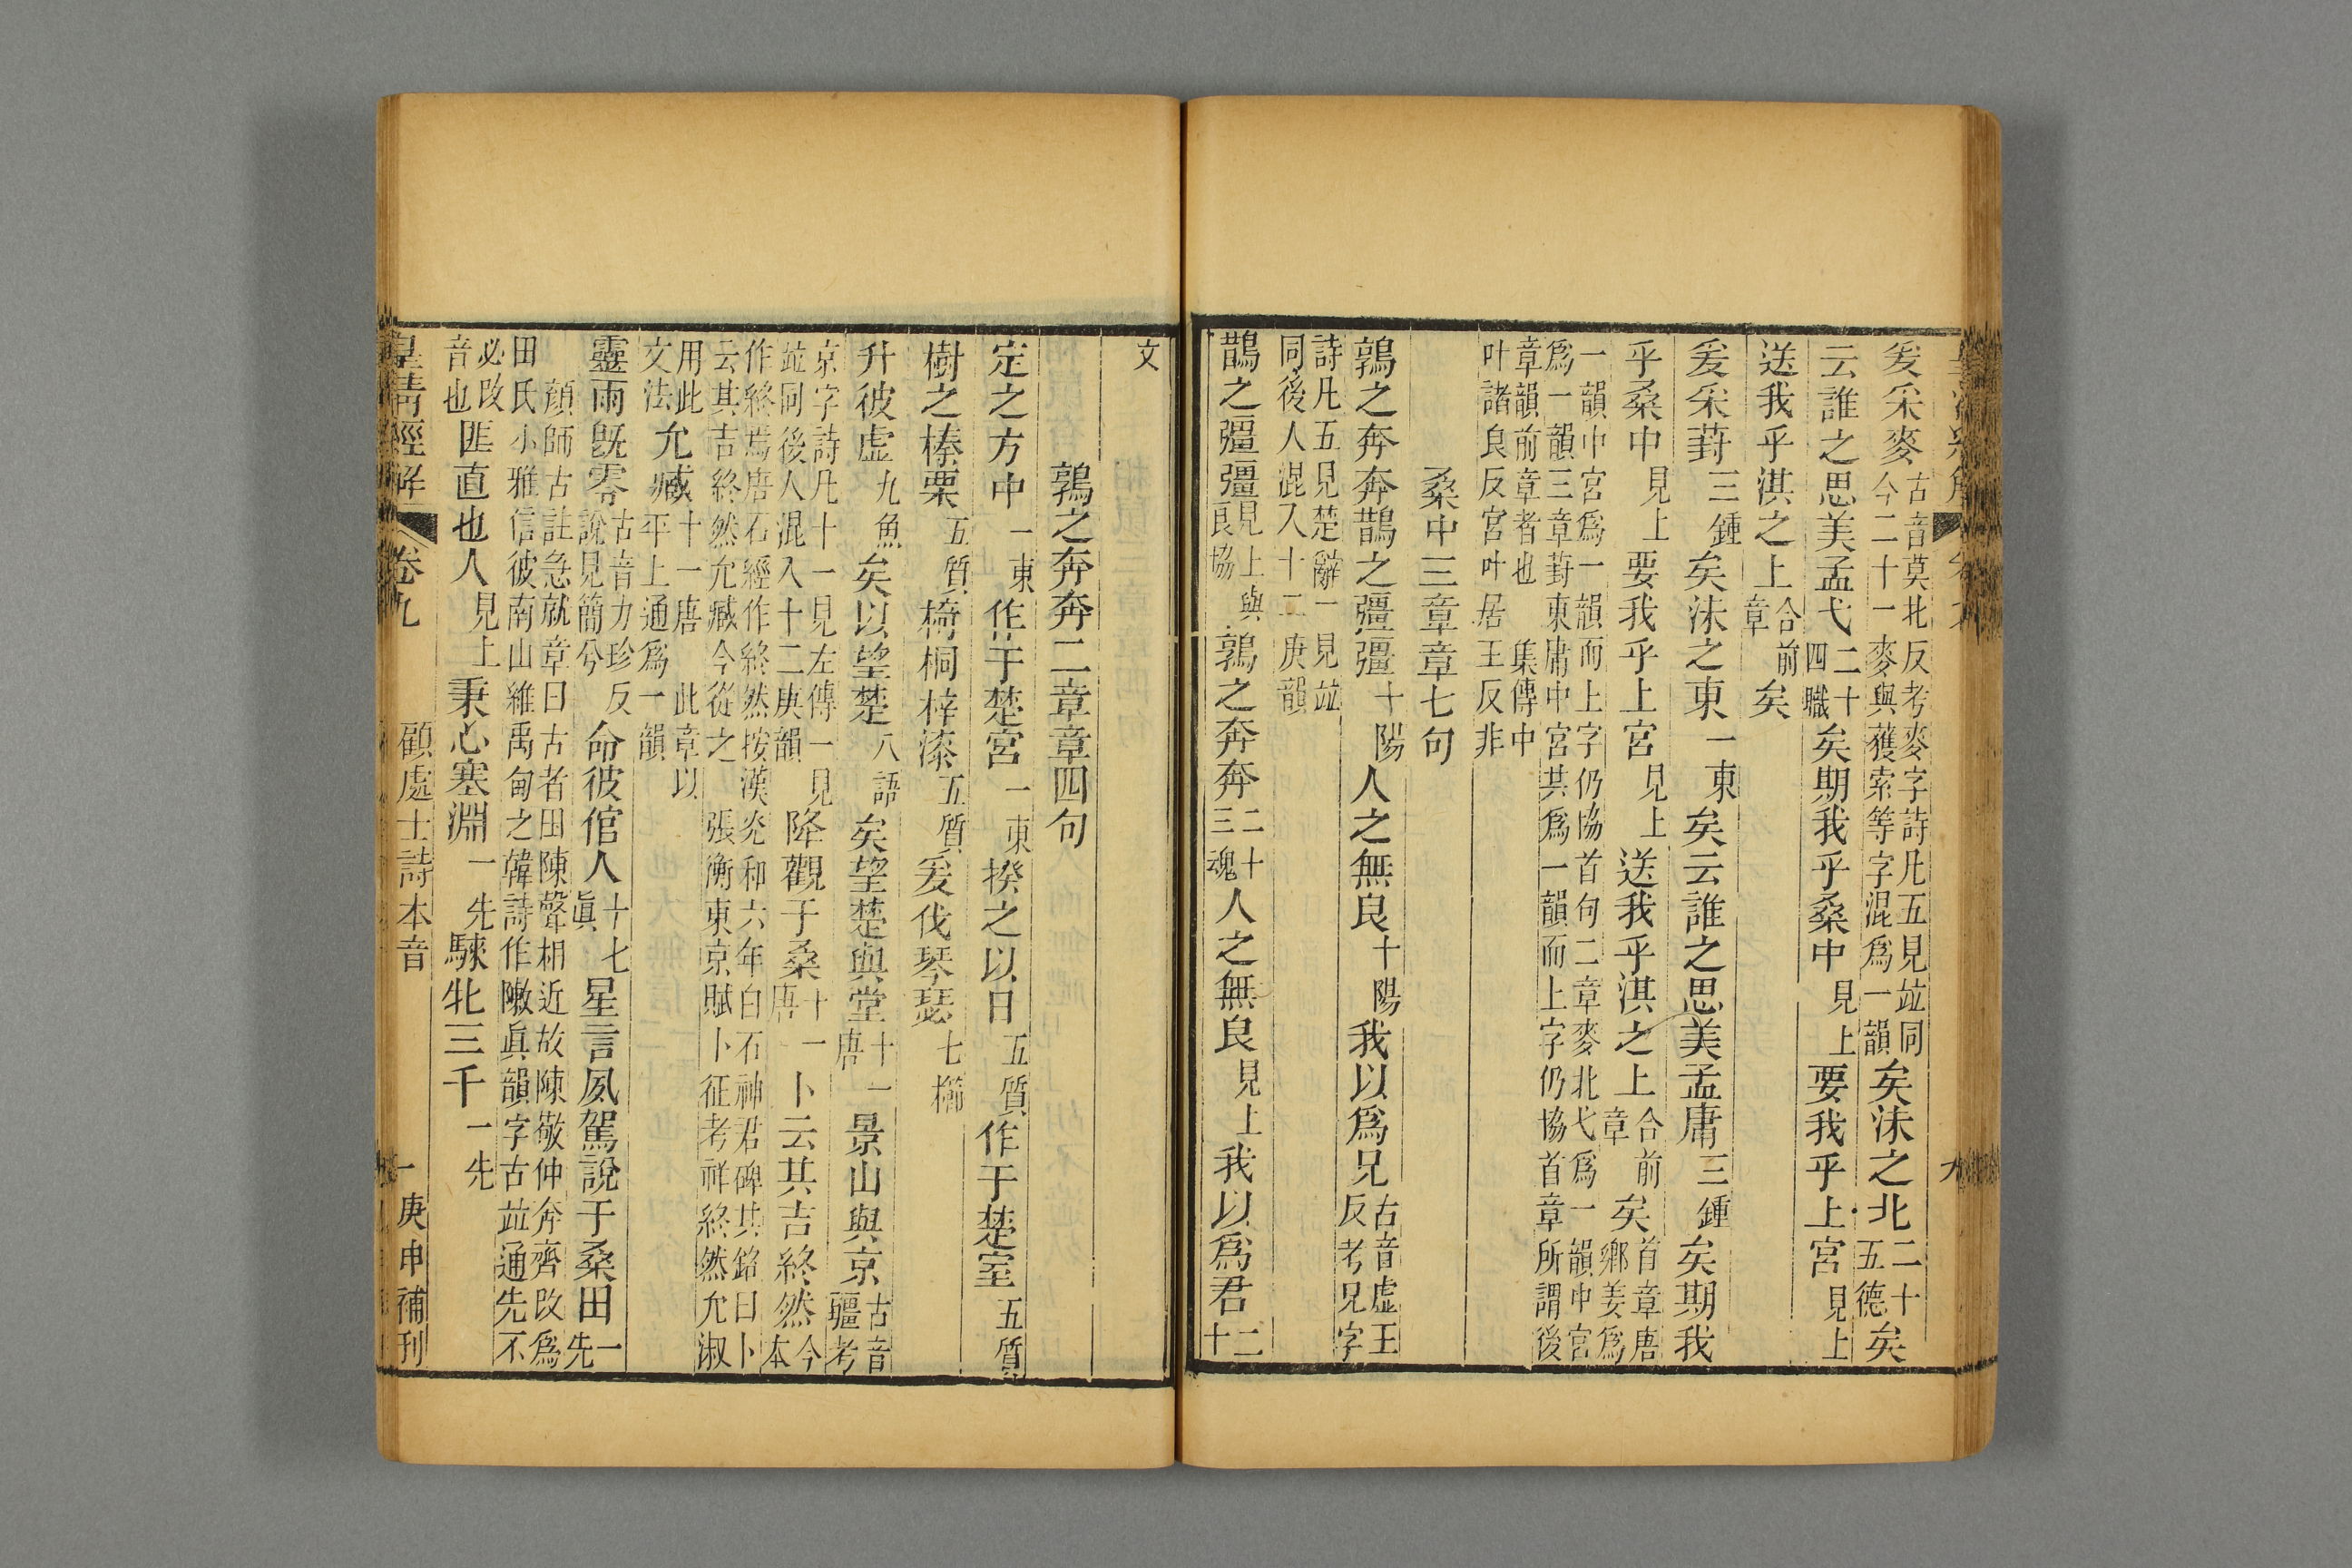 爰采麥古音莫北反考麥字詩凡五見竝同今二十一麥與獲索等字混爲一韻矣沬之北二十五德矣
云誰之思美孟弋二十四職矣期我乎桑中見上要我乎上宮見上
送我乎淇之上合前章矣
爰采葑三鍾矣沬之東一東矣云誰之思美孟庸三鍾矣期我
乎桑中見上要我乎上宮見上送我乎淇之上合前章矣首章唐鄉姜爲
一韻中宮爲一韻而上字仍協首句二章麥北弋爲一韻中宮爲一韻三章葑東庸中宮共爲一韻而上字仍協首章所謂後
章韻前章者也 集傳中叶諸良反宮叶居王反非
桑中三章章七句
鶉之奔奔鵲之彊彊十陽人之無良十陽我以爲兄古音虛王反考兄字
詩凡五見楚辭一見竝同後人混入十二庚韻
鵲之彊彊見上與良協鶉之奔奔二十三魂人之無良見上我以爲君二十
文
鶉之奔奔二章章四句
定之方中一東作于楚宮一東揆之以日五質作于楚室五質
樹之榛栗五質椅桐梓漆五質爰伐琴瑟七櫛
升彼虛九魚矣以望楚八語矣望楚與堂十一唐景山與京古音疆考
京字詩凡十一見左傳一見竝同後人混入十二庚韻降觀于桑十一唐卜云其吉終然今本
作終焉唐石經作終然按漢兖和六年白石神君碑其銘曰卜云其吉終然允臧今從之 張衡東京賦卜征考祥終然允淑
用此文法允臧十一唐 此章以平上通爲一韻
靈雨既零古音力珍反說見簡兮命彼倌人十七眞星言夙駕說于桑田一先
顏師古註急就章曰古者田陳聲相近故陳敬仲奔齊改爲田氏小雅信彼南山維禹甸之韓詩作敶眞韻字古竝通先不
必改音也匪直也人見上秉心塞淵一先騋牝三千一先
皇清經解 卷九 顧處士詩本音 一 庚申補刊